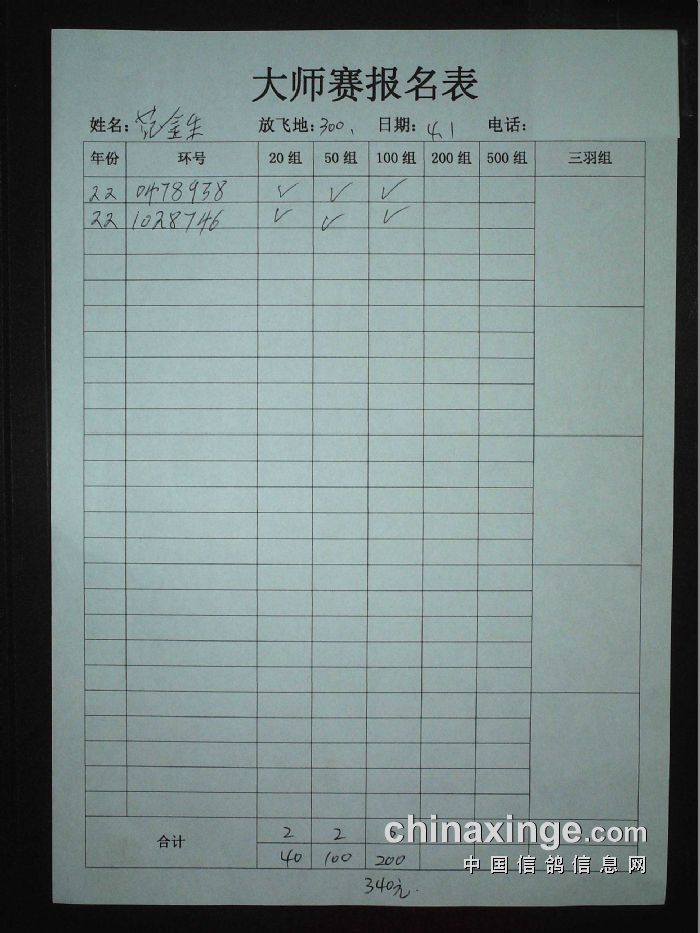 大师赛报名表
姓名: 范金生 放飞地: 300. 日期: 4.1 电话:
年份 环号 20 组 50 组 100 组 200 组 500 组 三羽组
22 0478938 ✓ ✓ ✓
22 1028746 ✓ ✓ ✓
合计 2 2
40 100 200
340元.
chinaxinge.com
中国信鸽信息网